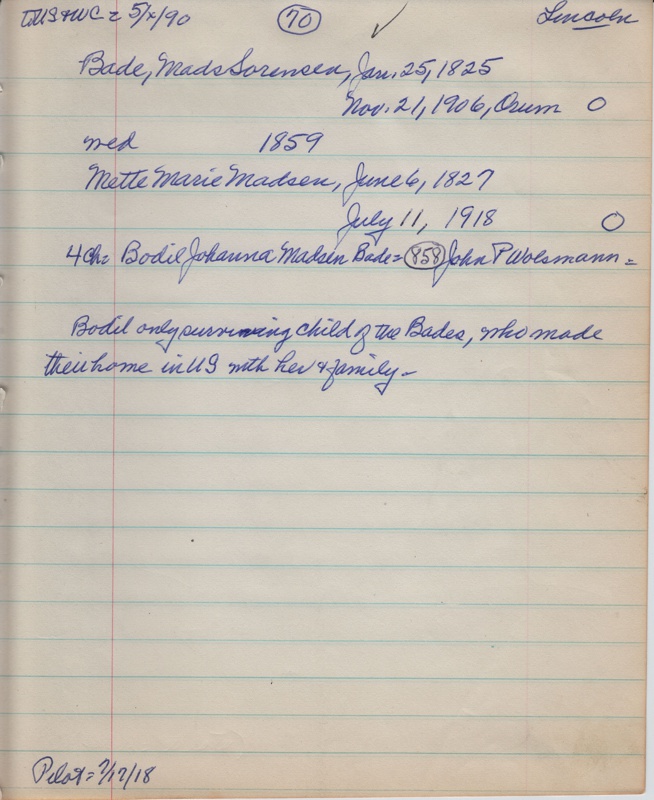 TMS&WC = 5/x/90 70 ✓ Lincoln
Bade, Mads Sorensen, Jan. 25, 1825
Nov. 21, 1906, Orum O
wed 1859
Mette Marie Madsen, June 6, 1827
July 11, 1918 O
4 Ch = Bodil Johanna Madsen Bade = 858 John P Wolsmann =
Bodil only surviving child of the Bades, who made
their home in US with her & family -
Pilot = 7/17/18